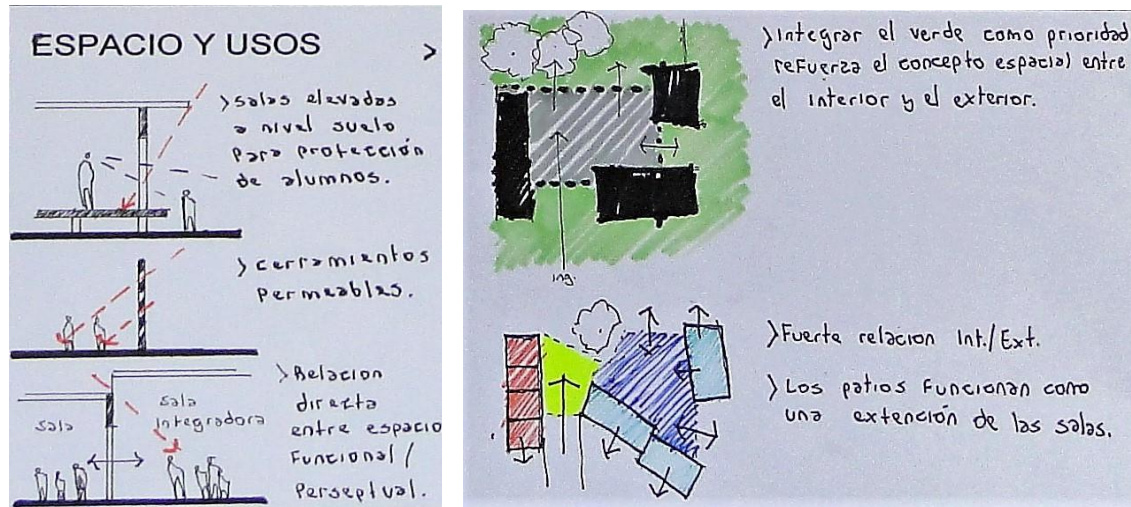 ESPACIO Y USOS >
> salas elevadas
a nivel suelo
para protección
de alumnos.
> cerramientos
permeables.
sala
sala
integradora
> Relacion
directa
entre espacio
Funcional /
Perseptual.
> Integrar el verde como prioridad
refuerza el concepto espacial entre
el interior y el exterior.
ing.
> Fuerte relacion Int./Ext.
> Los patios Funcionan como
una extención de las salas.